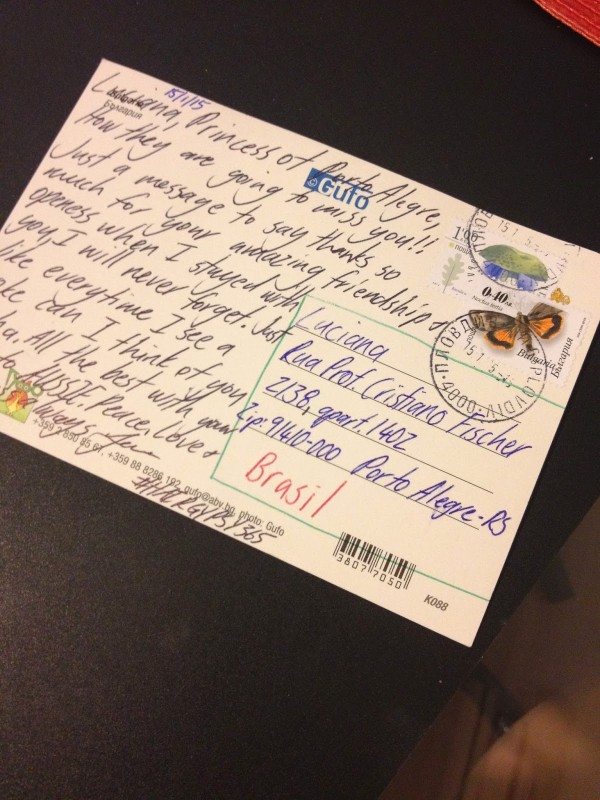 15/1/15
България
Luciana, Princess of Porto Alegre,
How they are going to miss you!!
Just a message to say thanks so
much for your amazing friendship &
openess when I stayed with
you, I will never forget. Just
like everytime I see a
coke can I think of you
ha. All the best with your
Peace, Love &
Gufo
1.00
0.10
Noctua tertia
Bulgaria
България
ПЛОВДИВ
PLOVDIV
4000
15 1
Luciana
Rua Prof. Cristiano Fischer
2138, apart. 1402
Zip: 91410-000 Porto Alegre-RS
Brasil
+359 88 8286 192, gufo@abv.bg, photo: Gufo
38077050
K088